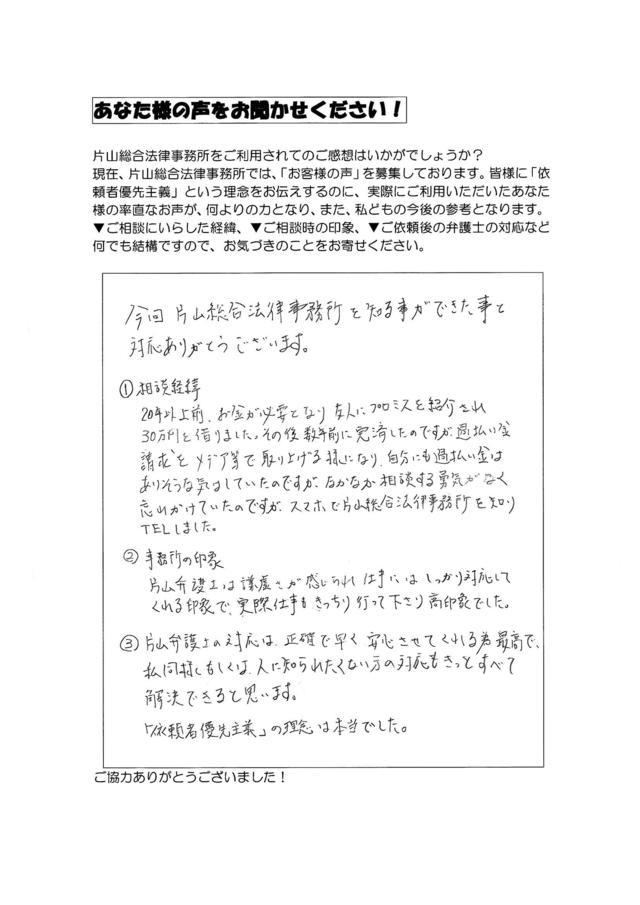 あなた様の声をお聞かせください！
片山総合法律事務所をご利用されてのご感想はいかがでしょうか？
現在、片山総合法律事務所では、「お客様の声」を募集しております。皆様に「依
頼者優先主義」という理念をお伝えするのに、実際にご利用いただいたあなた
様の率直なお声が、何よりの力となり、また、私どもの今後の参考となります。
▼ご相談にいらした経緯、▼ご相談時の印象、▼ご依頼後の弁護士の対応など
何でも結構ですので、お気づきのことをお寄せください。
今回 片山総合法律事務所を知る事ができた事と
対応ありがとうございます。
①相談経緯
20年以上前、お金が必要となり友人にプロミスを紹介され
30万円を借りました。その後数年前に完済したのですが過払い金
請求をメディア等で取り上げる様になり、自分にも過払い金は
ありそうな気はしていたのですが、なかなか相談する勇気がなく
忘れかけていたのですが、スマホで片山総合法律事務所を知り
TELしました。
②事務所の印象
片山弁護士は謙虚さが感じられ仕事にはしっかり対応して
くれる印象で、実際仕事もきっちり行って下さり高印象でした。
③片山弁護士の対応は、正確で早く安心させてくれる為最高で、
私同様もしくは、人に知られたくない方の対応もきっとすべて
解決できると思います。
「依頼者優先主義」の理念は本当でした。
ご協力ありがとうございました！